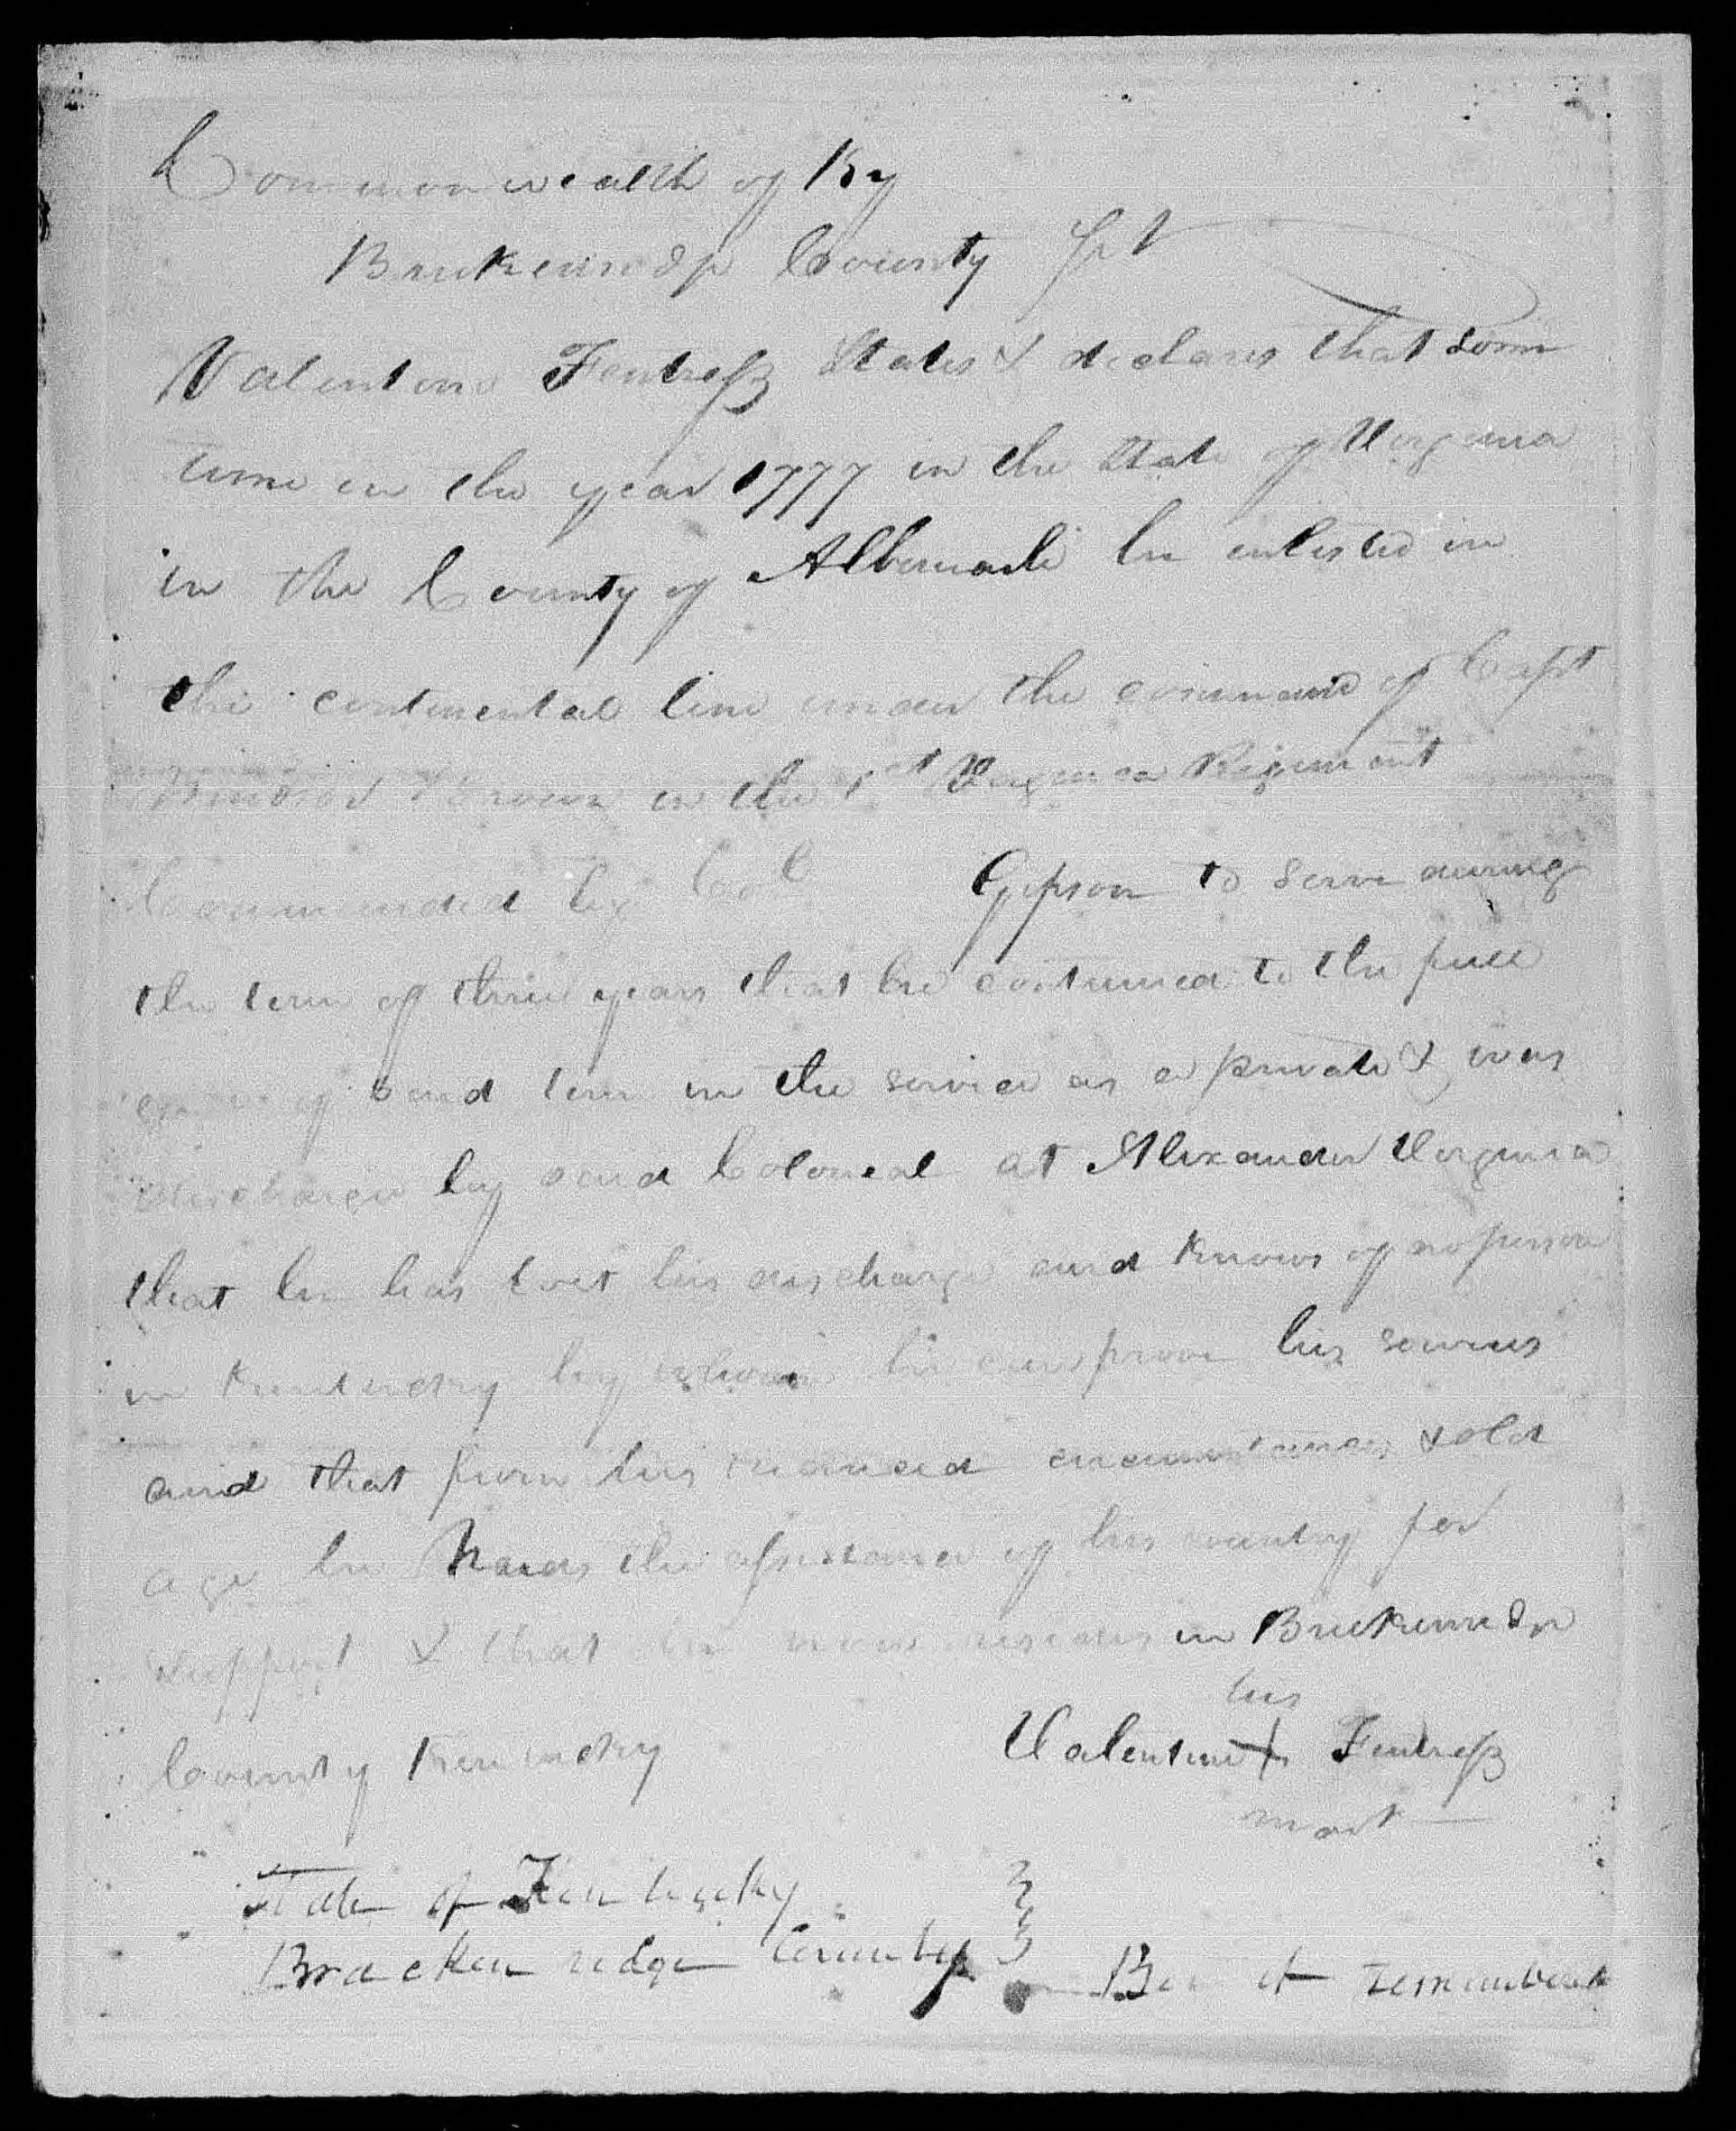 Commonwealth of Ky
Breckenridge County Sct
Valentine Fentress States & declares that some
time in the year 1777 in the State of Virginia
in the County of Albemarle he enlisted in
the continental line under the command of Capt
Brown in the 1st Virginia Regiment
Commanded by Col Gipson to serve during
the term of three years that he continued to the full
of said term in the service as a private & was
discharge by said Coloneal at Alexander Virginia
that he has lost his discharge and knows of no person
in Kentucky by whom he can prove his services
and that from his reduced circumstances & old
age he Needs the assistance of his country for
support & that he now resides in Breckenridge
County Kentucky
his
Valentine + Fentress
mark
State of Kentucky
Brackenridge County Be it remembered